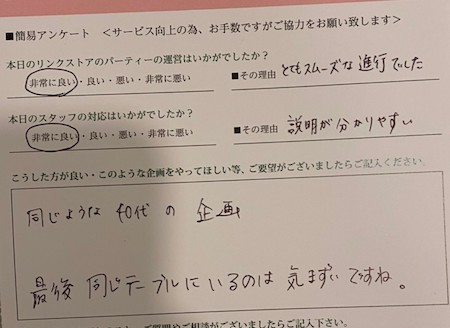 ■簡易アンケート　＜サービス向上の為、お手数ですがご協力をお願い致します＞
本日のリンクストアのパーティーの運営はいかがでしたか？
非常に良い・良い・悪い・非常に悪い　■その理由　とてもスムーズな進行でした
本日のスタッフの対応はいかがでしたか？
非常に良い・良い・悪い・非常に悪い　■その理由　説明が分かりやすい
こうした方が良い・このような企画をやってほしい等、ご要望がございましたらご記入ください。
同じような 40代 の 企画
最後 同じテーブルにいるのは 気まずいですね。
ご質問やご相談がございましたらご記入下さい。